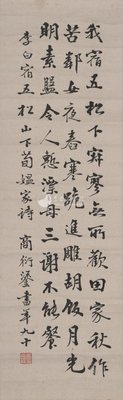 我宿五松下寂寥無所歡田家秋作
苦鄰女夜舂寒跪進雕胡飯月光
明素盤令人慙漂母三謝不能餐
李白宿五松山下荀媼家詩
商衍鎏書年九十